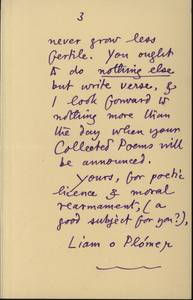 3
never grow less
fertile. You ought
to do nothing else
but write verse, &
I look forward to
nothing more than
the day when your
Collected Poems will
be announced.
Yours, for poetic
licence & moral
rearmament, (a
good subject for you?),
Liam o Plómer